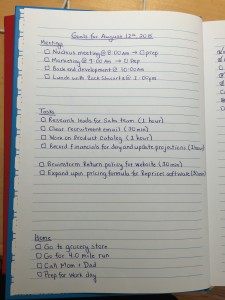 Goals for August 12th, 2015
Meetings
□ Nucleus meeting @ 8:00am → □ prep
□ Marketing @ 9:00am → □ Prep
□ Back end development @ 10:00am
□ Lunch with Zack Stuart @ 1:00pm
Tasks
□ Research leads for Sales team (1 hour)
□ Clear recruitment email (30 min)
□ Work on Product Catalog (1 hour)
□ Record financials for day and update projections (1 hour)
□ Brainstorm Return policy for website (30 min)
□ Expand upon pricing formula for Repricer software
Home
□ Go to grocery store
□ Go for 4.0 mile run
□ Call Mom + Dad
□ Prep for work day